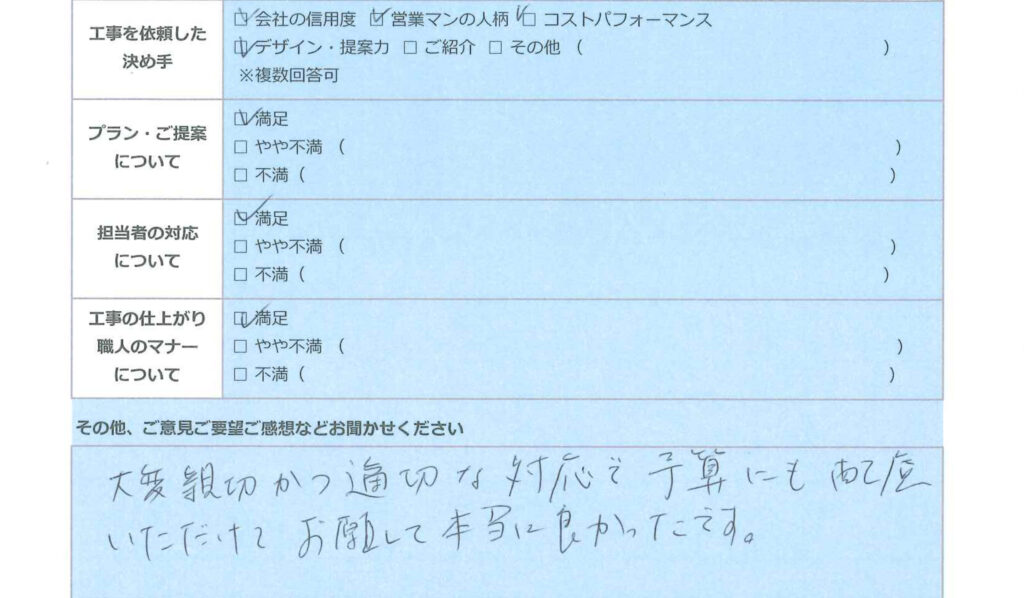 工事を依頼した
決め手
☑ 会社の信用度 ☑ 営業マンの人柄 ☑ コストパフォーマンス
☑ デザイン・提案力 □ ご紹介 □ その他 ( )
※複数回答可
プラン・ご提案
について
☑ 満足
□ やや不満 ( )
□ 不満 ( )
担当者の対応
について
☑ 満足
□ やや不満 ( )
□ 不満 ( )
工事の仕上がり
職人のマナー
について
☑ 満足
□ やや不満 ( )
□ 不満 ( )
その他、ご意見ご要望ご感想などお聞かせください
大変親切かつ適切な対応で予算にも配慮
いただけてお願して本当に良かったです。